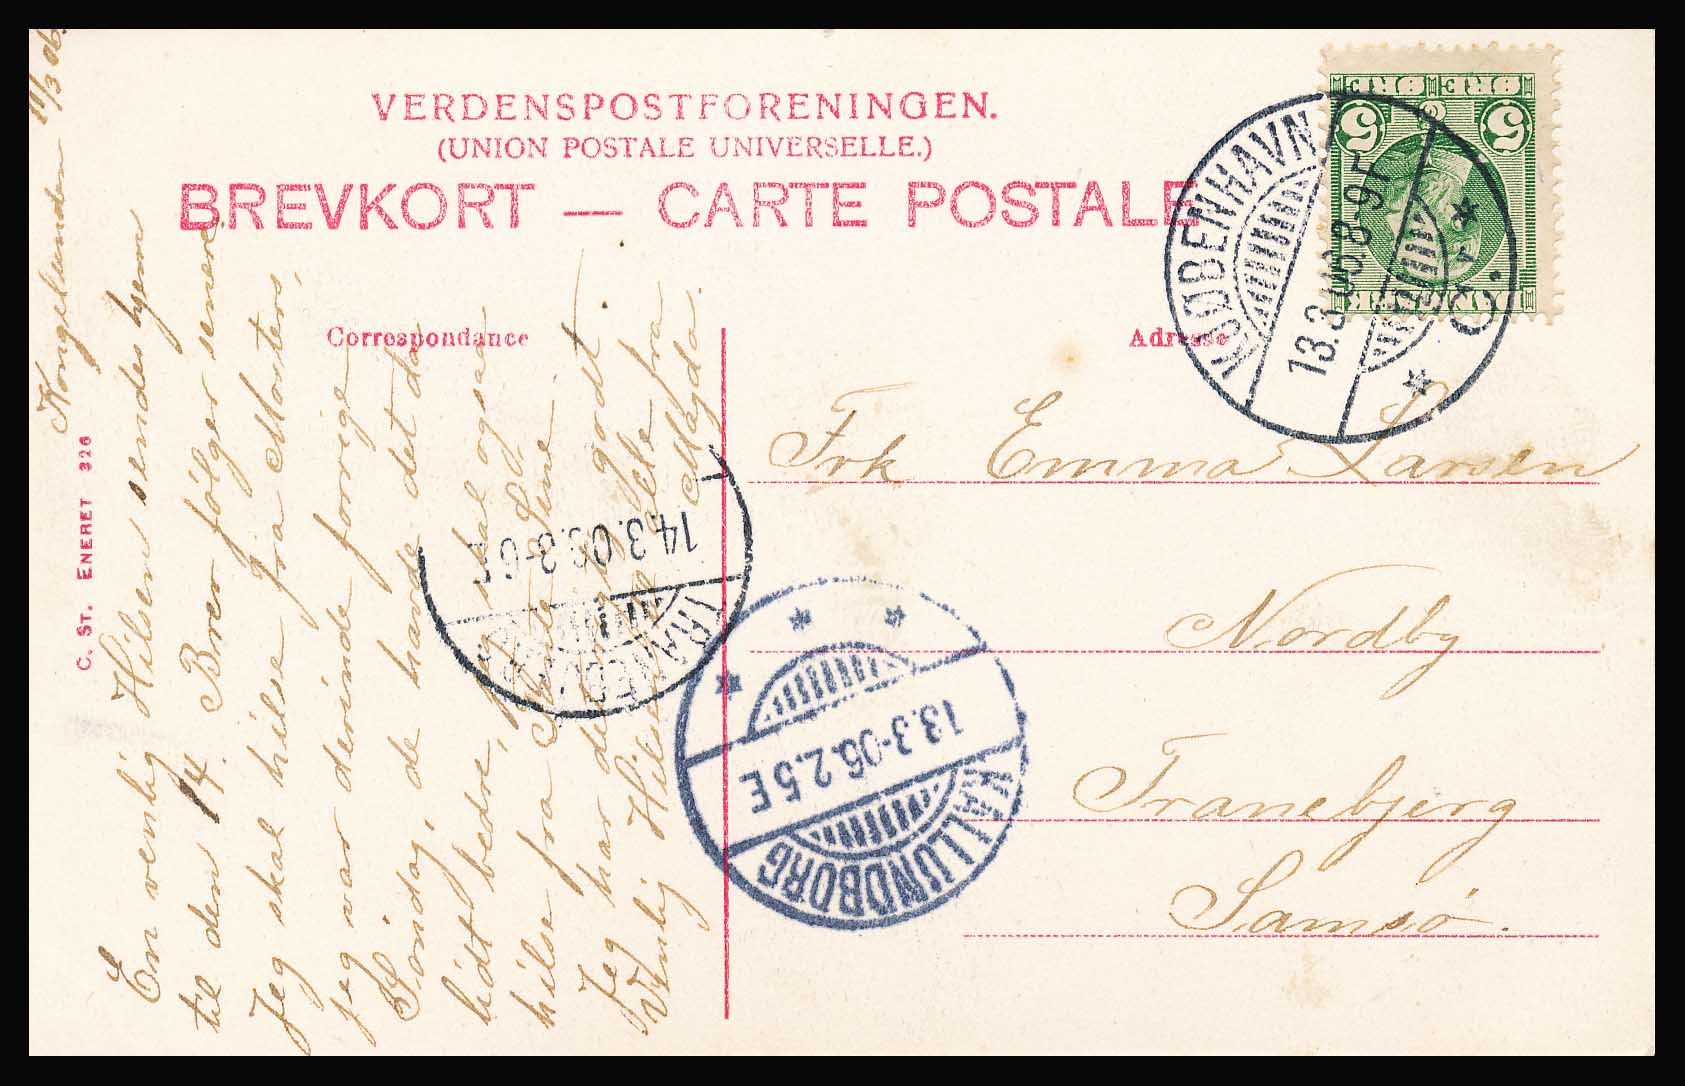 VERDENSPOSTFORENINGEN.
(UNION POSTALE UNIVERSELLE.)
BREVKORT — CARTE POSTALE
Correspondance
Adresse
C. ST. ENERET 326
Kongelunden 11/3 06.
En venlig Hilsen sendes hjem
til den 14. Brev følger senere
Jeg skal hilse fra Mosters,
jeg var derinde forrige
Söndag, de havde det da
lidt bedre, skal ogsaa
hilse fra Sine
Jeg har det godt
Venlig Hilsen fra
Magda.
Frk Emma Larsen
Nordby
Tranebjerg
Samsö.
5 ØRE 5
KJØBENHAVN
13.3.06.8-9F
* K. *
KALLUNDBORG
13.3-06.2.5E
TRANEBJERG
14.3.06.3-6E